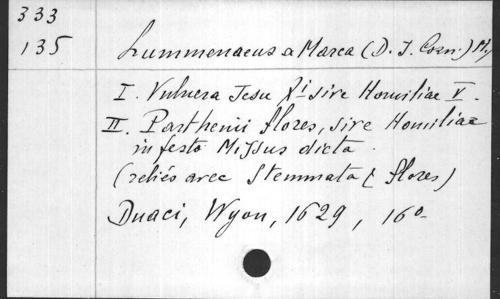 333
135
Lummenaeus a Marca (D. J. Corn.) My
I. Vulnera Jesu Xi sive Homiliae V.
II. Parthenii flores, sive Homiliae
in festo Missus dicta.
(reliés avec Stemmata & flores)
Duaci, Wyon, 1629, 16o